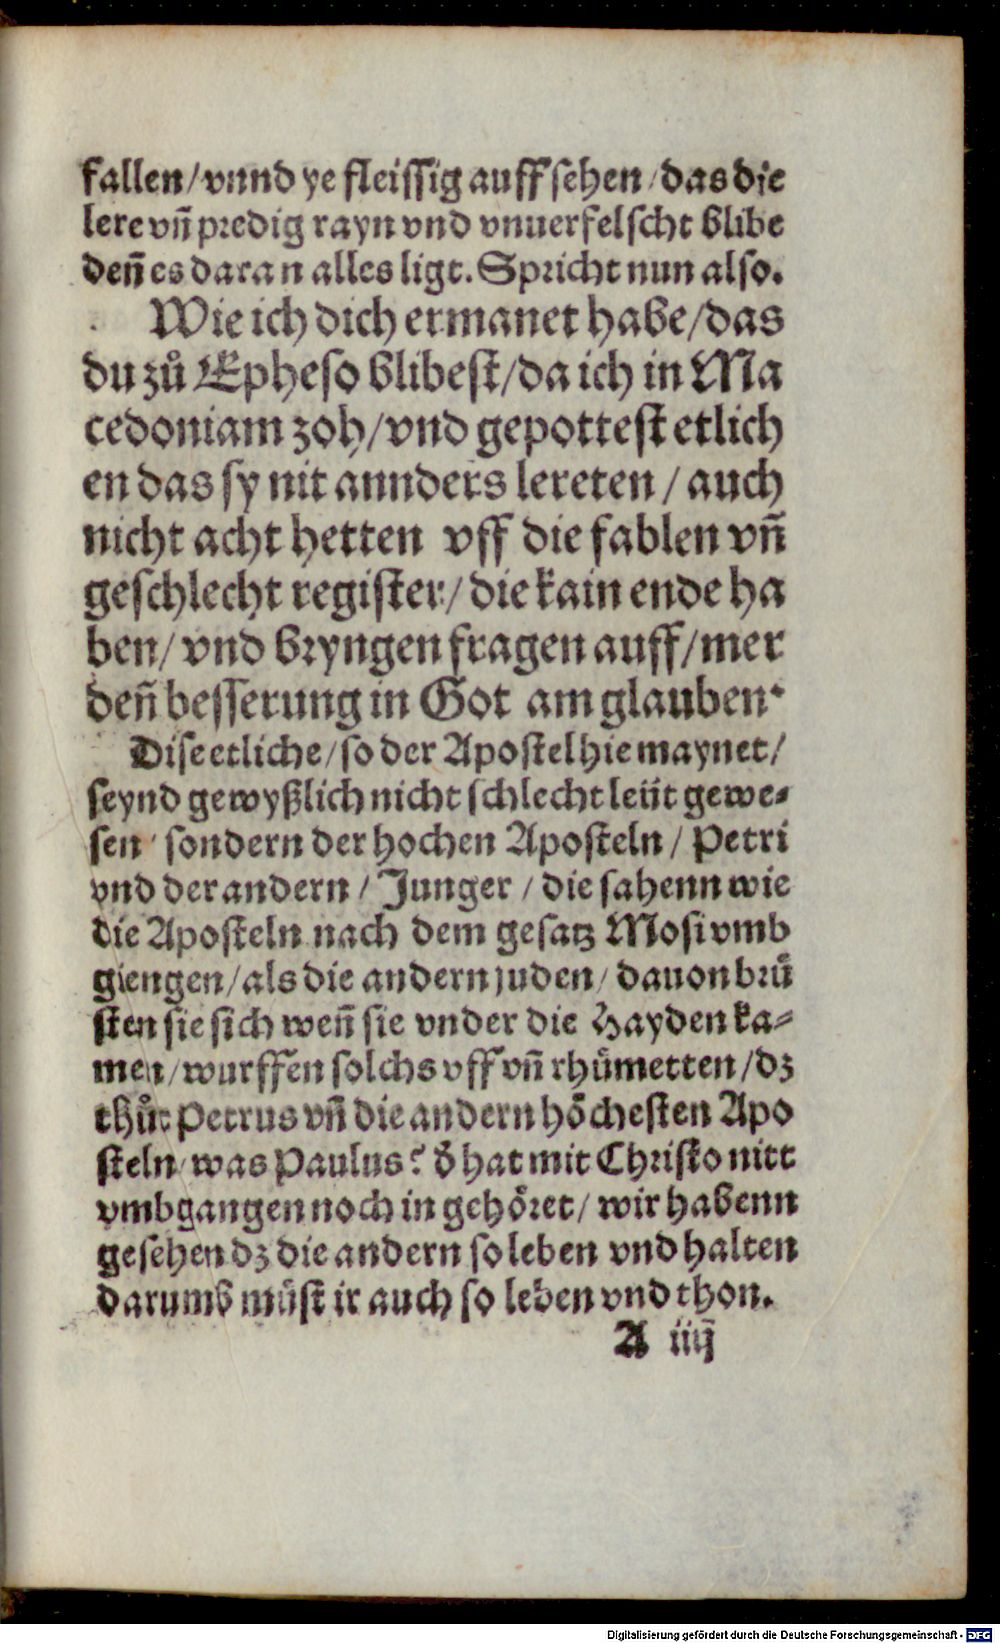 fallen/vnnd ye fleissig auff sehen/das die
lere vñ predig rayn vnd vnuerfelscht blibe
deñ es daran alles ligt. Spricht nun also.
Wie ich dich ermanet habe/das
du zů Epheso blibest/da ich in Ma
cedoniam zoh/vnd gepottest etlich
en das sy nit annders lereten / auch
nicht acht hetten vff die fablen vñ
geschlecht register/die kain ende ha
ben/vnd bryngen fragen auff/mer
deñ besserung in Got am glauben.
Dise etliche/so der Apostel hie maynet/
seynd gewyßlich nicht schlecht leüt gewe⸗
sen/sondern der hochen Aposteln/Petri
vnd der andern/Junger/die sahenn wie
die Aposteln nach dem gesatz Mosi vmb
giengen/als die andern juden/dauon brů
sten sie sich weñ sie vnder die Hayden ka⸗
men/wurffen solchs vff vñ rhůmetten/dz
thůt Petrus vñ die andern hőchesten Apo
steln/was Paulus? d̕ hat mit Christo nitt
vmbgangen noch in gehőret/wir habenn
gesehen dz die andern so leben vnd halten
darumb müst ir auch so leben vnd thon.
A iiij
Digitalisierung gefördert durch die Deutsche Forschungsgemeinschaft - DFG